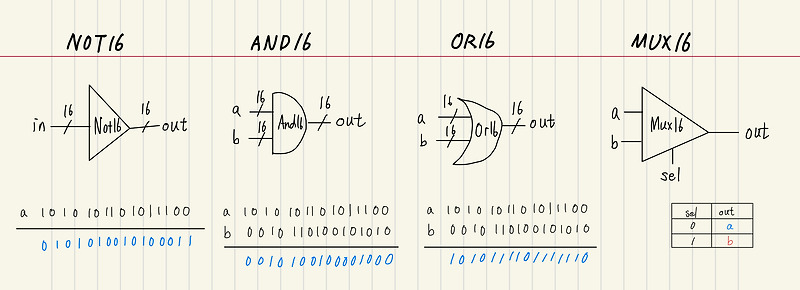 NOT16
AND16
OR16
MUX16
in 16 Not16 16 out
a 16
b 16
And16 16 out
a 16
b 16
Or16 16 out
a
b
Mux16 out
sel
a 1010101101011100
0101010010100011
a 1010101101011100
b 0010110100101010
0010100100001000
a 1010101101011100
b 0010110100101010
1010111101111110
sel out
0 a
1 b